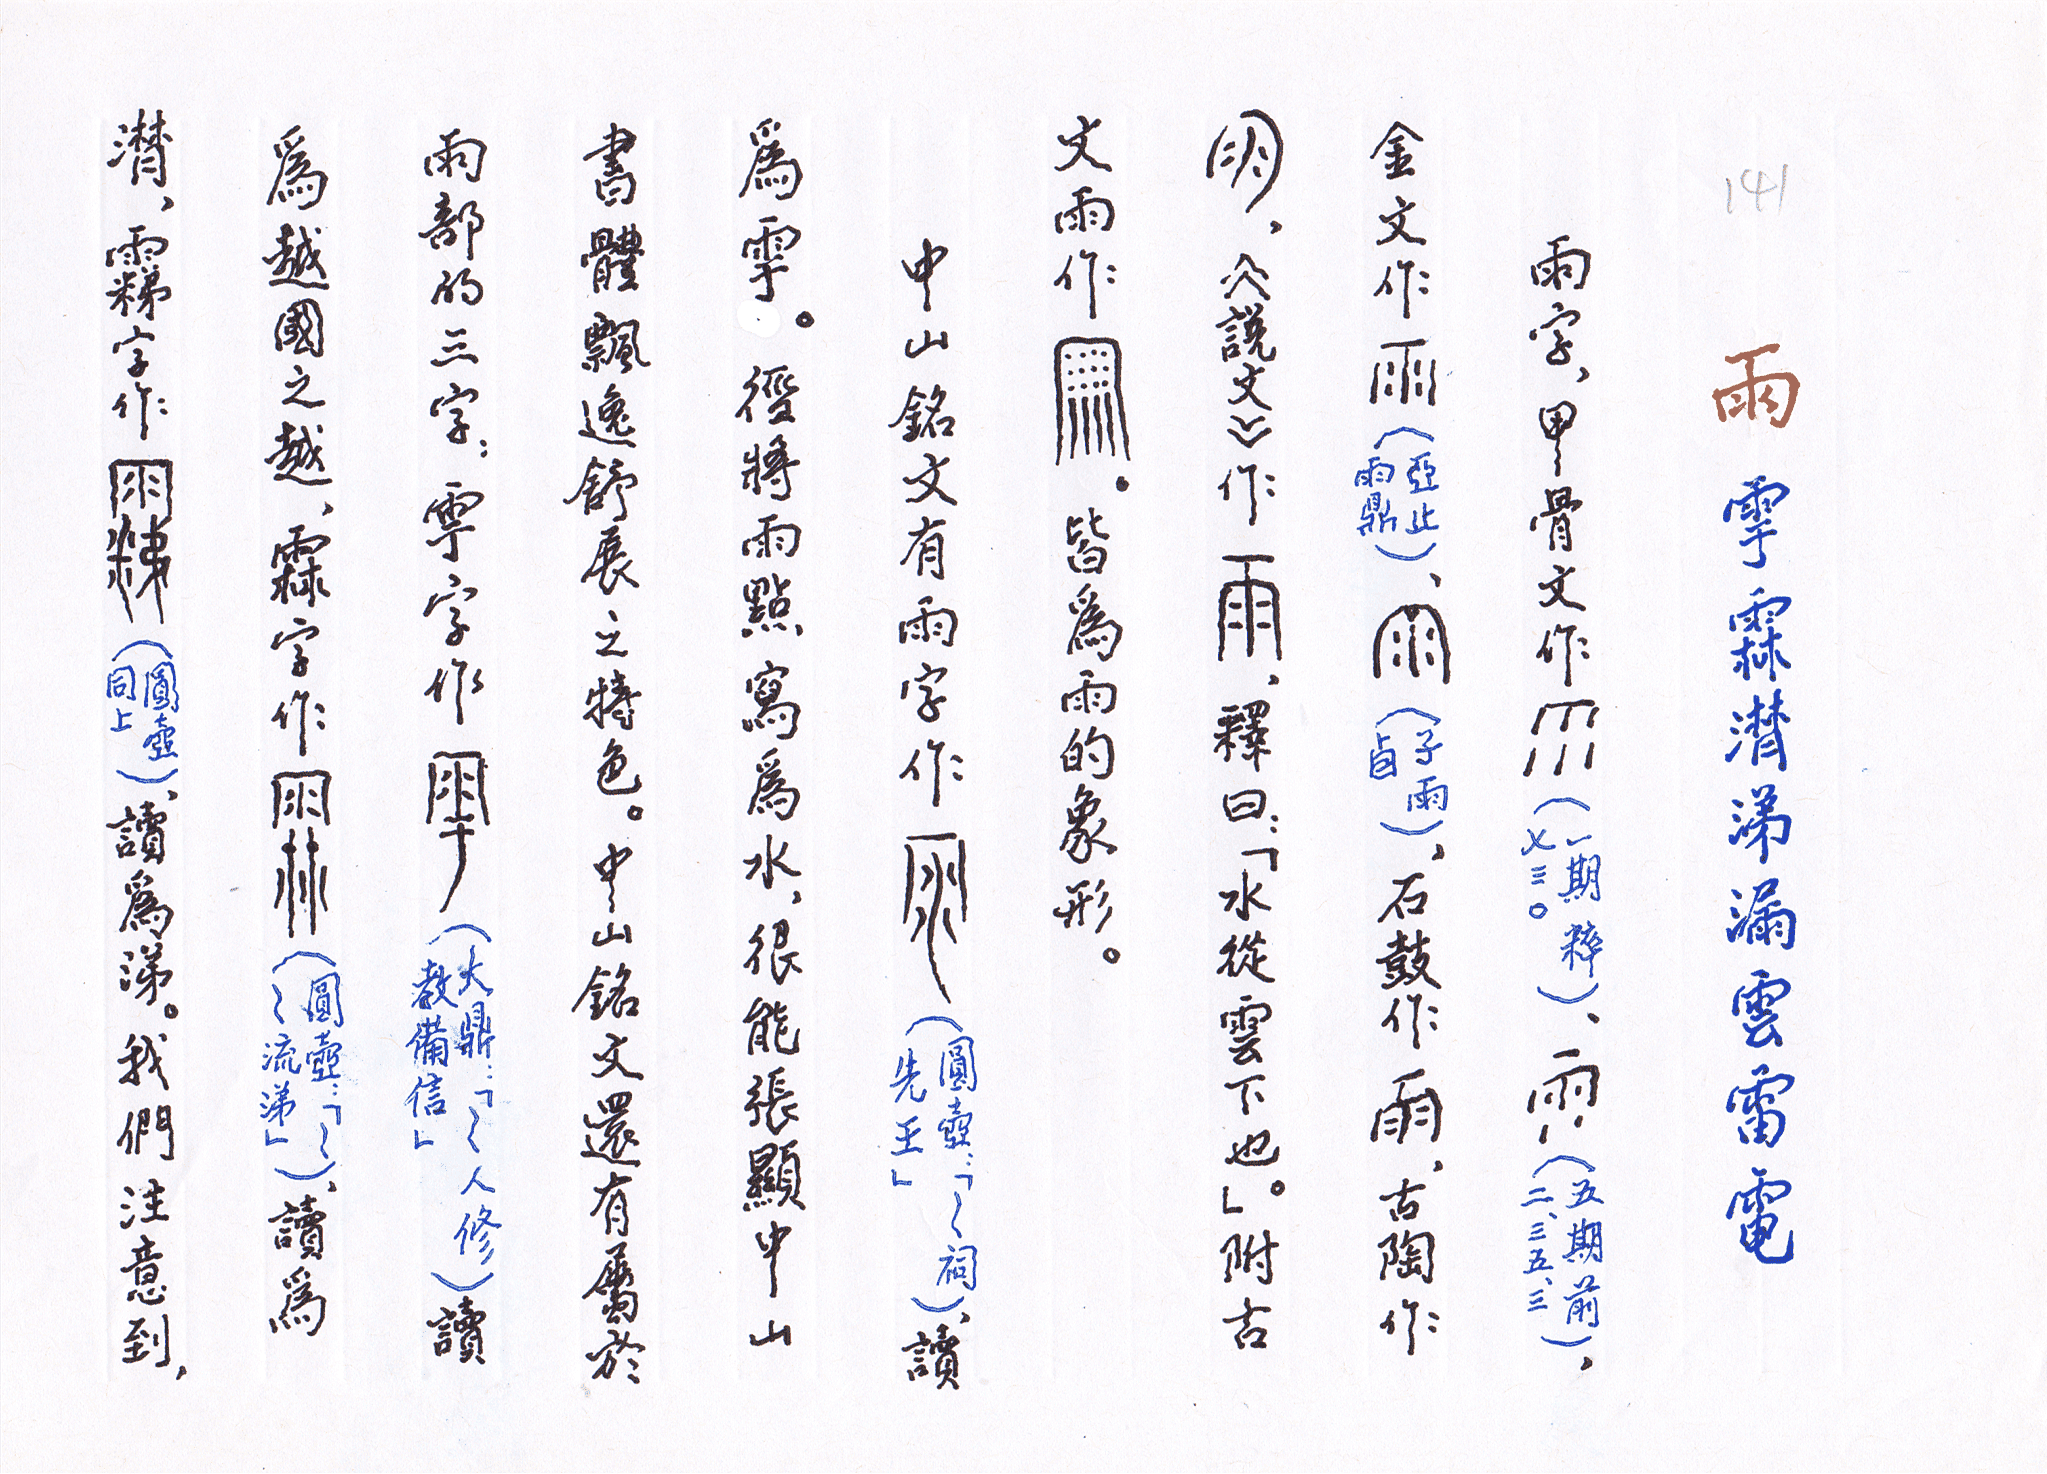 141
雨 雩霖潸涕漏雲雷電
雨字，甲骨文作（一期 粹七三〇）、（五期前二、三五、三），
金文作（亞止雨鼎）、（子雨卣），石鼓作，古陶作
，《說文》作，釋曰：「水從雲下也。」附古
文雨作。皆爲雨的象形。
中山銘文有雨字作（圓壺：「〻祠先王」），讀
爲雩。徑將雨點寫爲水，很能張顯中山
書體飄逸舒展之特色。中山銘文還有屬於
雨部的三字：雩字作（大鼎：「〻人修教備信」）讀
爲越國之越，字作（圓壺：「〻〻流涕」），讀爲
潸，字作（圓壺同上），讀爲涕。我們注意到，